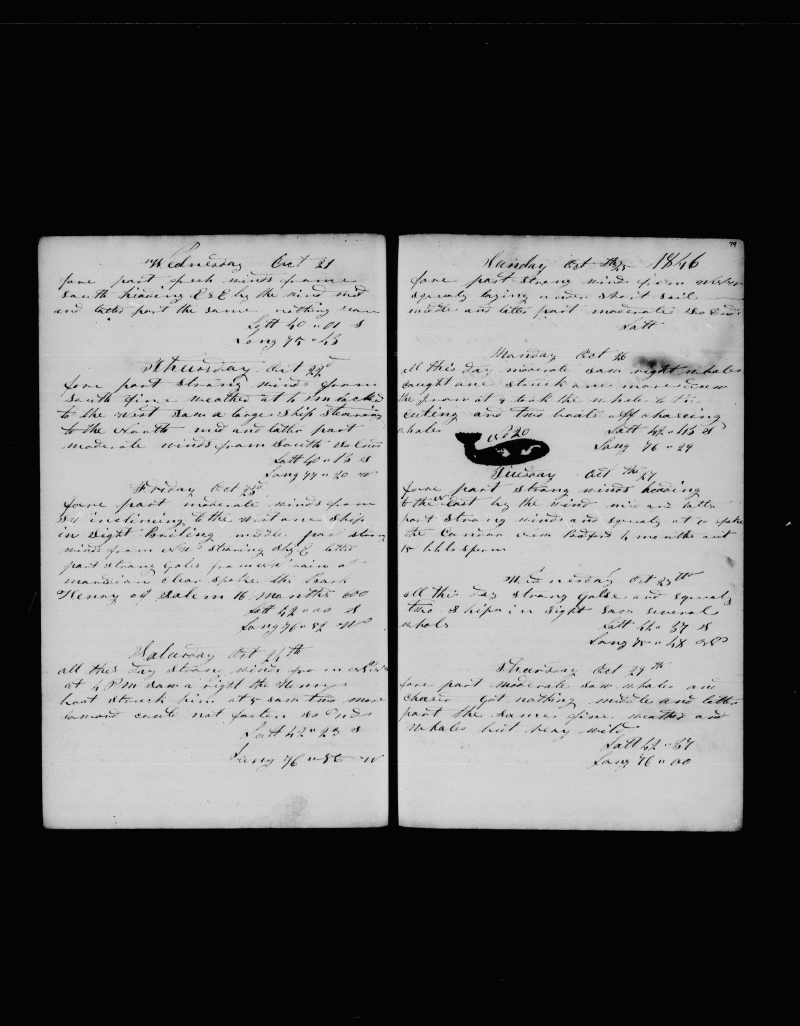 Wednesday Oct 21
fore part fresh winds from
South heading E S E by the wind mid
and latter part the same nothing seen
Latt 40 " 01 S
Long 75 " 43
Thursday Oct 22d
fore part strong winds from
South fine weather at 4 P m tacked
to the west saw a large Ship Steering
to the North mid and latter part
moderate winds from South So Ends
Latt 40 " 13 S
Long 77 " 20 W
Friday Oct 23d
fore part moderate winds from
inclineing to the west one Ship
in sight middle part strong
winds from steering latter
part strong gales from rain at
maridian clear spoke the bark
Henry of Salem 16 months 600
Latt 42 " 00 S
Long 76 " 52 W
Saturday Oct 24th
all this day strong winds from
at 4 P M saw a right the Henrys
boat struck him at 5 saw two more
lowered could not fasten So Ends
Latt 42 " 23 S
Long 76 " 56 W
79
Sunday Oct the 25 1846
fore part strong wind from
squaly laying under short sail
middle and latter part moderate So Ends
Latt
Monday Oct 26
all this day moderate saw right whales
caught one struck one more
the at 9 took the whale to the
Cuting and two boats off chaseing
whales Latt 42 " 43 S
No 20 Long 76 " 29
Tuesday Oct the 27
fore part strong winds heading
to the East by the wind mid and latter
part strong winds and squaly at 10 spoke
the Condor New Bedford 4 months out
15 bbls sperm
Wednesday Oct 28th
all this day strong gales and squaly
two Ships in sight saw several
whales Latt 42 " 57 S
Long 75 " 48 W
Thursday Oct 29 th
fore part moderate saw whales and
chased got nothing middle and latter
part the same fine weather and
whales but very wild
Latt 42 " 57
Long 76 " 00